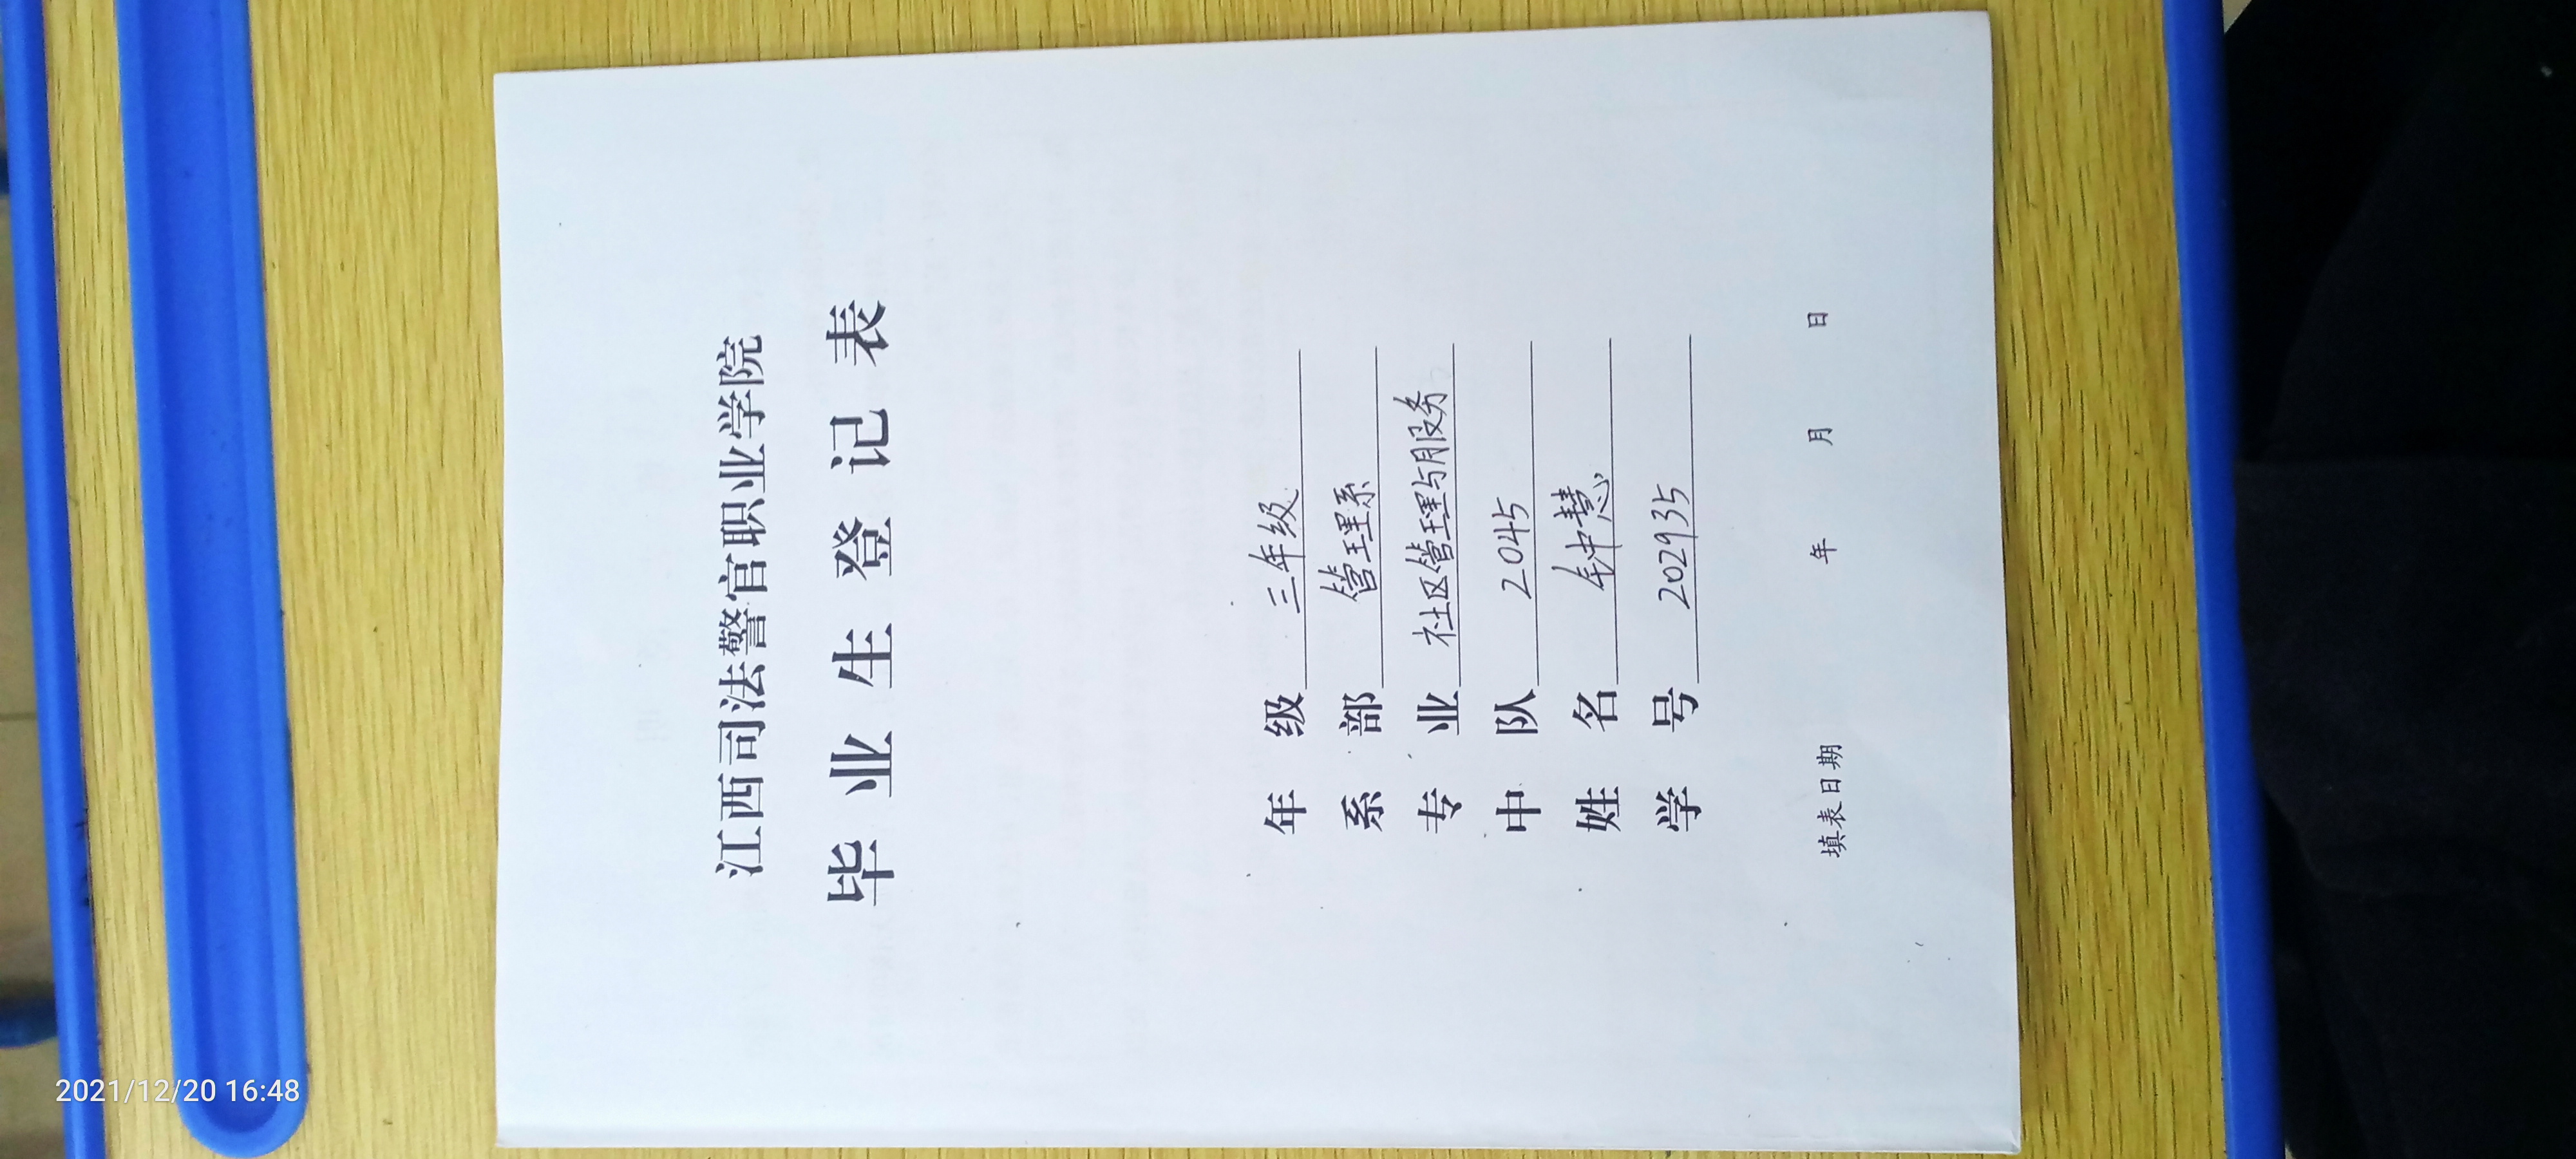 2021/12/20 16:48
江西司法警官职业学院
毕业生登记表
年 级 三年级
系 部 管理系
专 业 社区管理与服务
中 队 2045
姓 名 钟慧
学 号 202935
填表日期 年 月 日